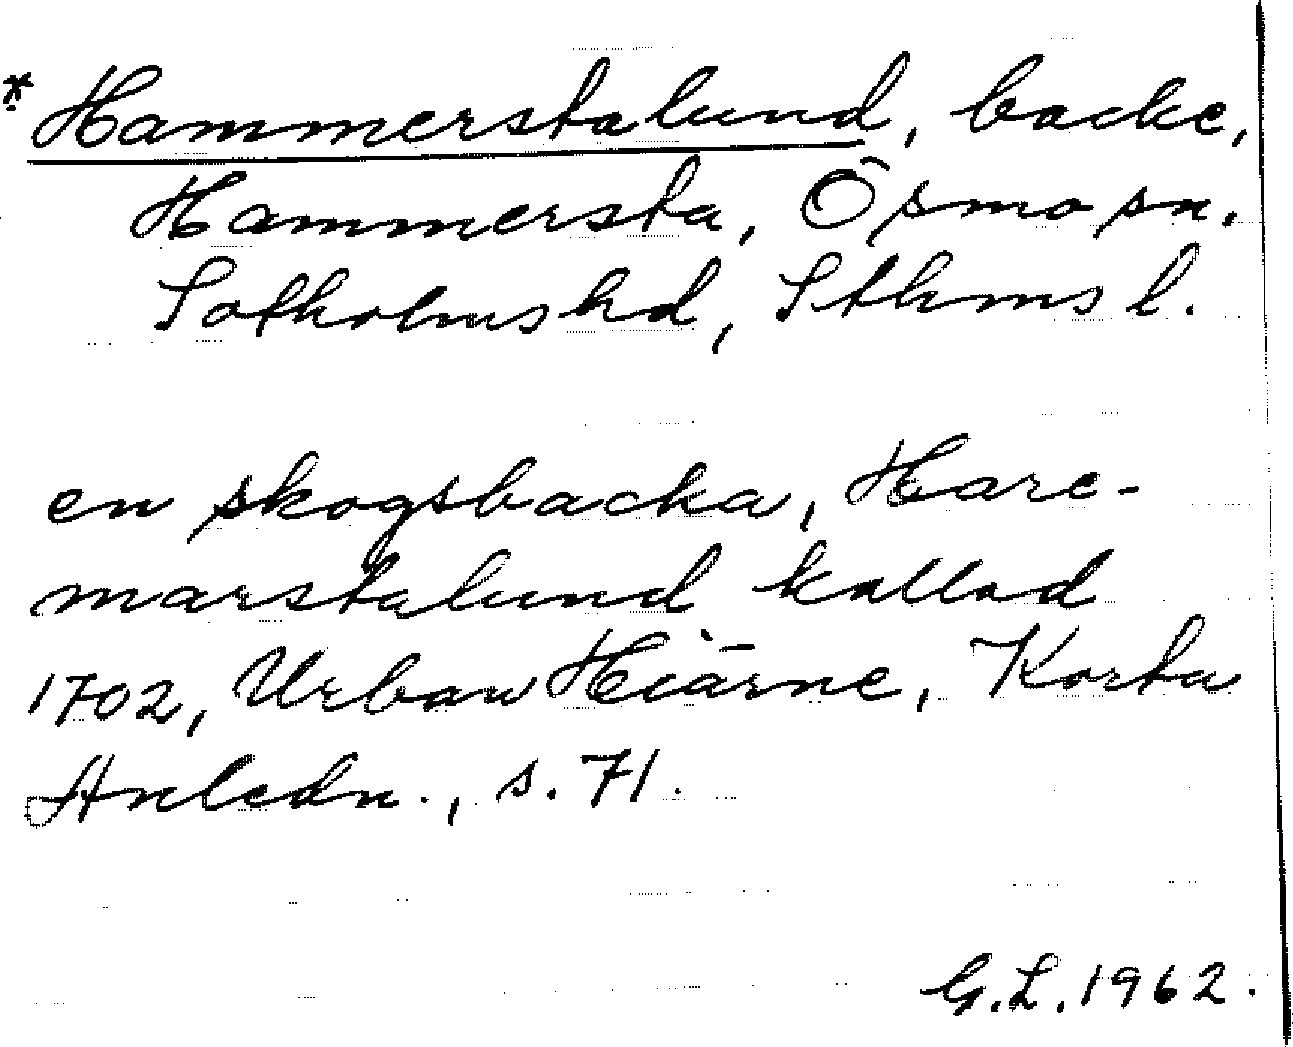 * Hammerstalund, backe,
Hammersta, Ösmo sn.
Sotholms hd, Sthms l.
en skogsbacka, Hare-
marstalund kallad
1702, Urban Hiärne, Korta
Anledn., s. 71.
G.L. 1962.